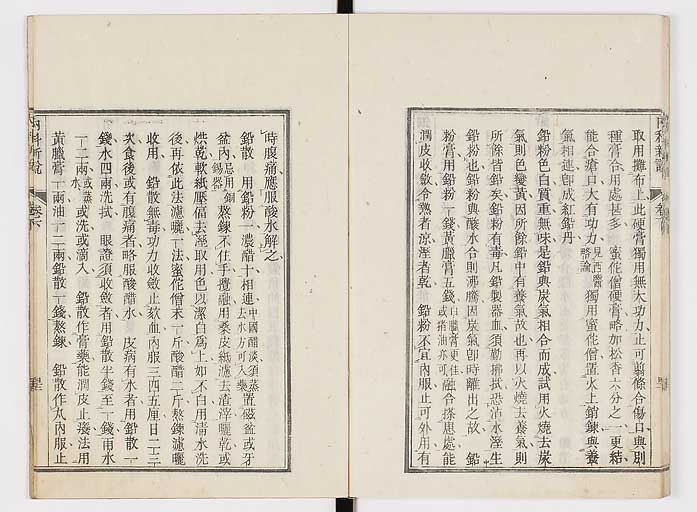 取用攤布上此硬膏獨用無大功力止可翦條合傷口與別
種膏合用處甚多 蜜佗僧硬膏略加松香六分之一更結
能合瘡口大有功力見西醫略論 獨用蜜佗僧置火上銷鍊與養
氣相連卽成紅鉛丹
鉛粉色白質重無味是鉛與炭氣相合而成試用火燒去炭
氣則色變黃因所餘鉛中有養氣故也再以火燒去養氣則
所餘皆鉛矣鉛粉有毒凡鉛製器皿須勤拂拭恐沾水溼生
鉛粉也鉛粉與酸水合則沸騰因炭氣卽時離出之故 鉛
粉膏用鉛粉一錢黃臘膏五錢白臘膏更佳或搭油亦可融合搽患處能
潤皮收斂令熱者涼溼者乾 鉛粉不宜內服止可外用有
時腹痛應服酸水解之
鉛散 用鉛粉一濃醋十相連中國醋淡須蒸去水方可入藥置磁盆或牙
盆內忌用銅錫器熬鍊不住手攪融用桑皮紙濾去渣滓曬乾或
烘乾軟紙壓偪去溼取用色以潔白爲上如不白用清水洗
後再依此法濾曬一法蜜佗僧末一斤酸醋二斤熬鍊濾曬
收用 鉛散無毒功力收斂止欬血內服三四五厘日二三
次食後或有腹痛者略服酸醋水 皮病有水者用鉛散一
錢水四兩洗拭 眼證須收斂者用鉛散半錢至一錢雨水
十二兩或蒸水或洗或滴入 鉛散作膏藥能潤皮止癢法用
黃臘膏十兩油十二兩鉛散十錢熬鍊 鉛散作丸內服止
內科新說
卷下